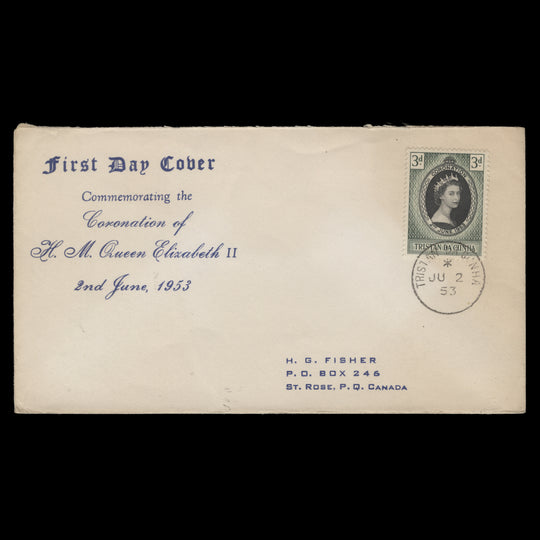 First Day Cover
Commemorating the
Coronation of
H. M. Queen Elizabeth II
2nd June, 1953
3d 3d
CORONATION
2ND JUNE 1953
TRISTAN DA CUNHA
TRISTAN DA CUNHA
*
JU 2
53
H. G. FISHER
P. O. BOX 246
ST. ROSE, P. Q. CANADA